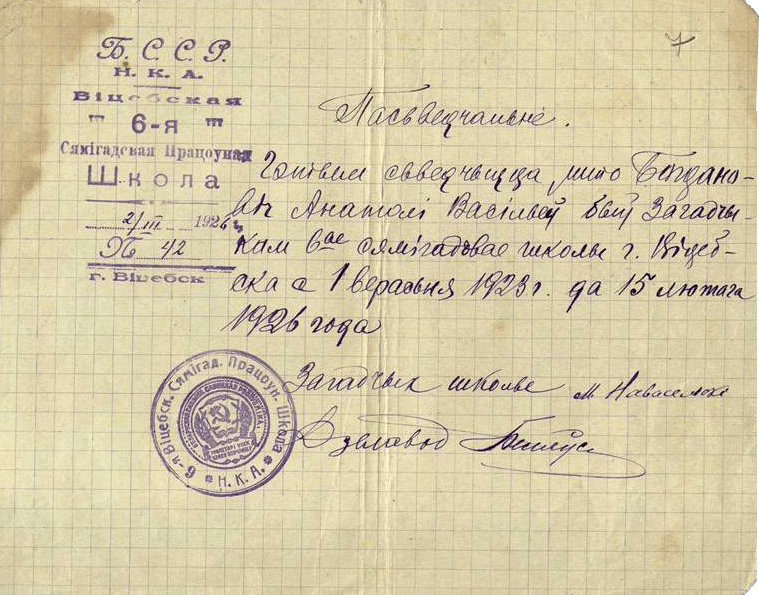 7
Б. С. С. Р.
Н. К. А.
Віцебская
"" 6-я ""
Сямігадовая Працоўная
Школа
2/III 1926
№ 42
г. Віцебск
Пасьведчаньне.
Гэтым сьведчыцца, што Богдано-
віч Анатолі Васільеў быў Загадчы-
кам 6ае сямігадовае школы г. Віцеб-
ска с 1 верасьня 1923 г. да 15 лютага
1926 года
Загадчык школы М. Наваселскі
Дзелавод
6-я Віцебск. Сямігад. Працоўн. Школа
* Н. К. А. *